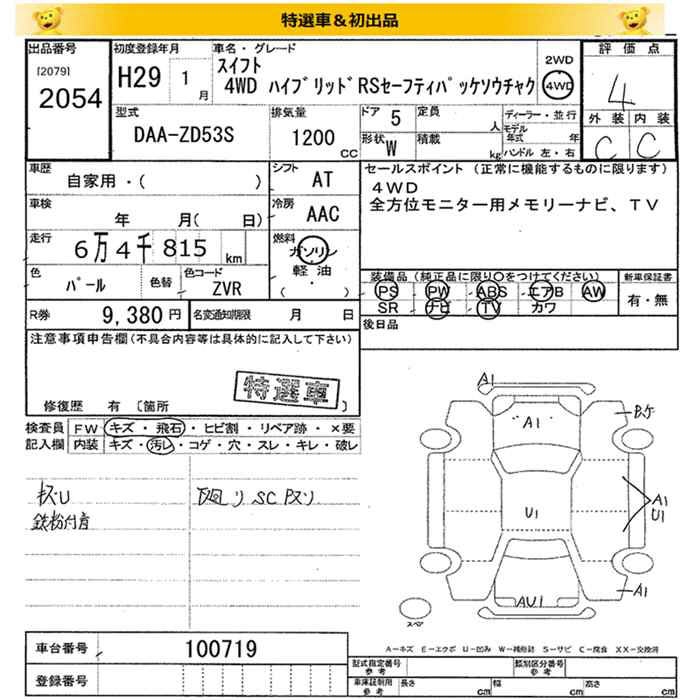 特選車＆初出品
出品番号
[2079]
2054
初度登録年月
H29 1 月
車名・グレード
スイフト
4WD ハイブリッドRSセーフティパッケソウチャク
2WD
4WD
評価点
4
外装 内装
C C
型式
DAA-ZD53S
排気量
1200 CC
ドア 5
定員 人
形状 W
積載 kg
ディーラー・並行
モデル年式 年
ハンドル 左・右
車歴
自家用・( )
シフト AT
車検
年 月( 日)
冷房 AAC
走行
6万4千815 km
燃料
ガソリン
軽油
( ・ )
色
パール
色替
色コード
ZVR
R券 9,380 円
名変通知期限 月 日
セールスポイント (正常に機能するものに限ります)
4WD
全方位モニター用メモリーナビ、TV
装備品 (純正品に限り○をつけてください)
PS PW ABS エアB AW
SR ナビ TV カワ
新車保証書
有・無
後日品
注意事項申告欄 (不具合内容等は具体的に記入して下さい)
特選車
修復歴 有 〔箇所 〕
検査員記入欄
FW キズ・飛石・ヒビ割・リペア跡・×要
内装 キズ・汚レ・コゲ・穴・スレ・キレ・破レ
キズU
鉄粉付着
下廻リ SC キズリ
A1
A1
U1
A1
U1
A1
AU1
スペア
A-キズ E-エクボ U-凹み W-補修跡 S-サビ C-腐食 XX-交換済
車台番号 100719
登録番号
型式指定番号 参考
類別区分番号 参考
車庫証明用 参考
長さ cm
幅 cm
高さ cm